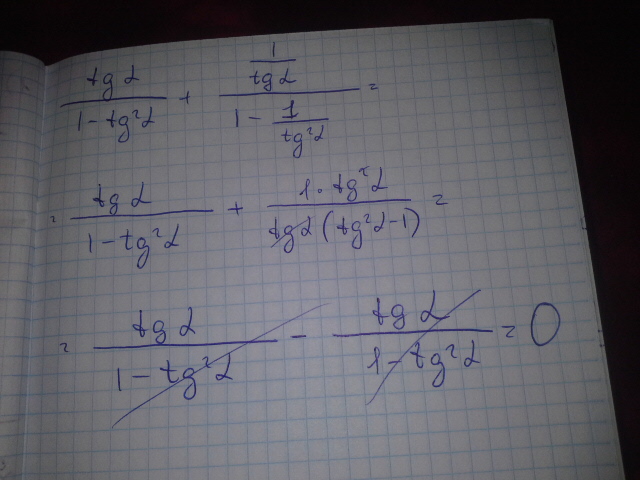 tg α / (1 - tg²α) + (1 / tg α) / (1 - 1 / tg²α) =
= tg α / (1 - tg²α) + 1 · tg²α / (tg α (tg²α - 1)) =
= tg α / (1 - tg²α) - tg α / (1 - tg²α) = 0